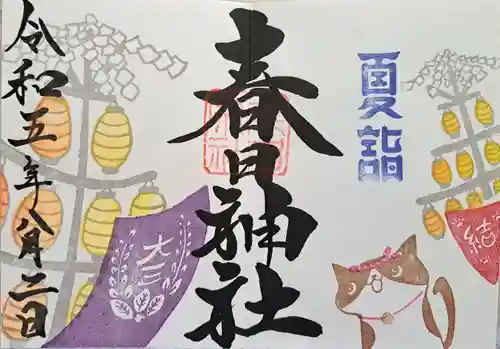 夏詣
春日神社
令和五年八月二日
大三
結